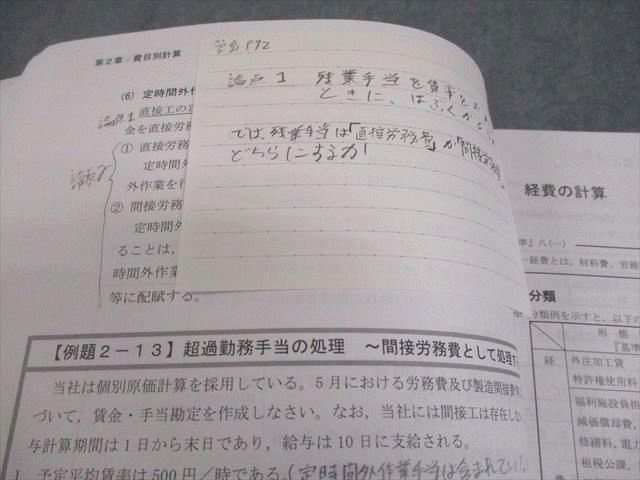 第2章:費目別計算
(6) 定時間外作
論点1 直接工の定
金を直接労務
論点2
① 直接労務
定時間外
外作業を行
② 間接労務
定時間外
ることは、
時間外作業
等に配賦する。
P72
論点1 残業手当を賃率
ときに、はぶくか
では、残業手当は「直接労務費」か「間接労務
どちらにするか
【例題2-13】超過勤務手当の処理 ~間接労務費として処理す
当社は個別原価計算を採用している。5月における労務費及び製造間接費
づいて,賃金・手当勘定を作成しなさい。なお,当社には間接工は存在しな
与計算期間は1日から末日であり,給与は10日に支給される。
1 予定平均賃率は500円/時である。(定時間外作業手当は含まれていない
経費の計算
準』八(一)
経費とは,材料費,労務
分類
分類例を示すと,以下の
形 態
『基準
経
外注加工賃
特許権使用料
福利施設負担
減価償却費,
修繕料,電力
租税公課,
費